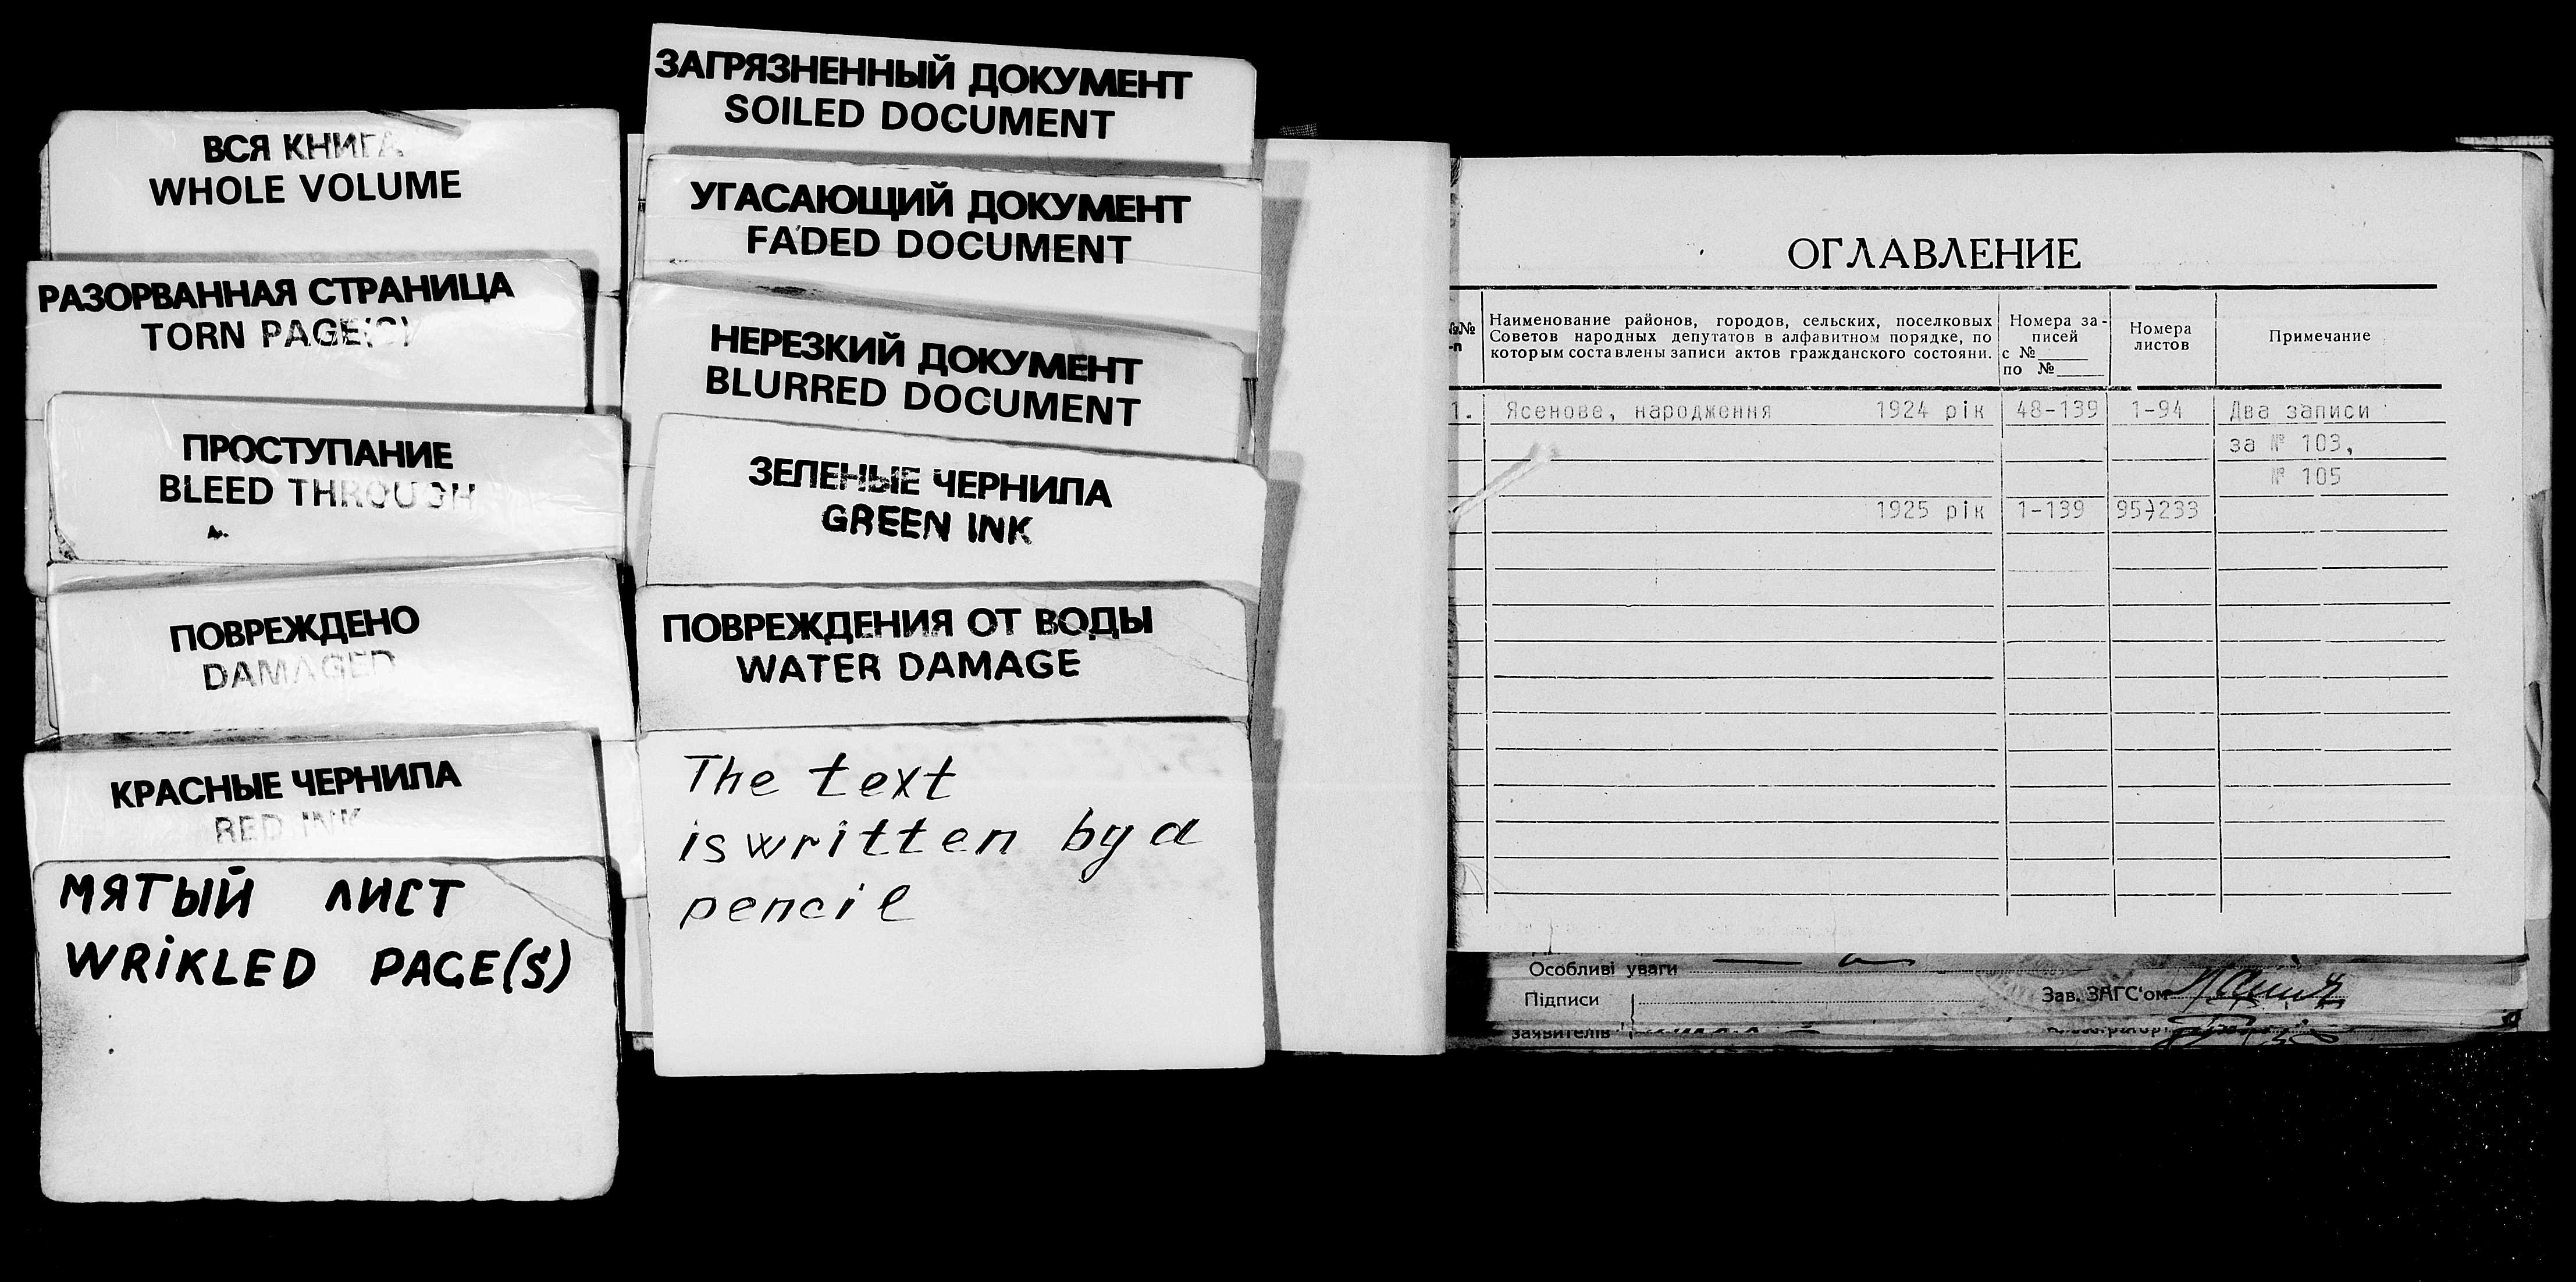 ВСЯ КНИГА
WHOLE VOLUME
РАЗОРВАННАЯ СТРАНИЦА
TORN PAGE(S)
ПРОСТУПАНИЕ
BLEED THROUGH
ПОВРЕЖДЕНО
DAMAGED
КРАСНЫЕ ЧЕРНИЛА
RED INK
МЯТЫЙ ЛИСТ
WRIKLED PAGE(S)
ЗАГРЯЗНЕННЫЙ ДОКУМЕНТ
SOILED DOCUMENT
УГАСАЮЩИЙ ДОКУМЕНТ
FADED DOCUMENT
НЕРЕЗКИЙ ДОКУМЕНТ
BLURRED DOCUMENT
ЗЕЛЕНЫЕ ЧЕРНИЛА
GREEN INK
ПОВРЕЖДЕНИЯ ОТ ВОДЫ
WATER DAMAGE
The text
is written by a
pencil
ОГЛАВЛЕНИЕ
№№
-п
Наименование районов, городов, сельских, поселковых
Советов народных депутатов в алфавитном порядке, по
которым составлены записи актов гражданского состояни.
Номера за-
писей
с №
по №
Номера
листов
Примечание
1. Ясенове, народження 1924 рік 48-139 1-94 Два записи
за № 103,
№ 105
1925 рік 1-139 95-233
Особливі уваги
Підписи
Зав. ЗАГС'ом
заявителів